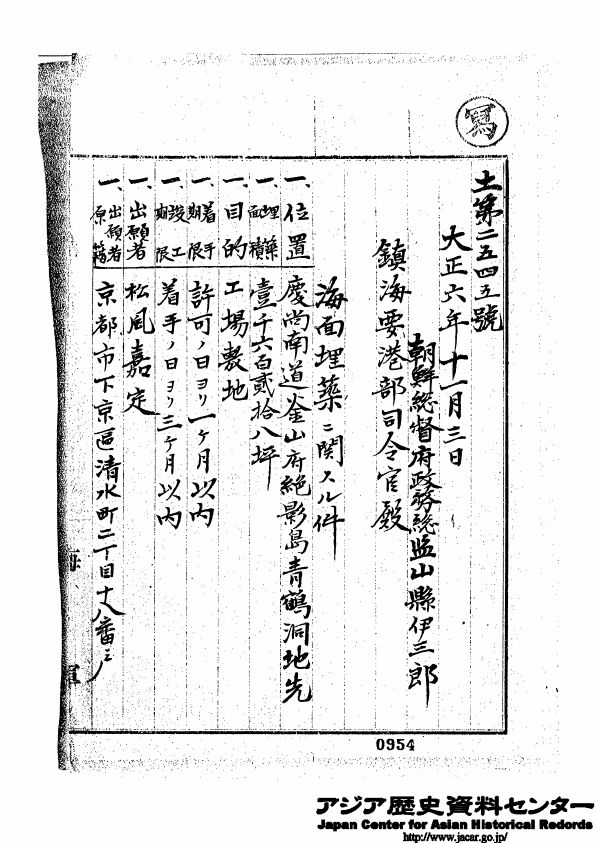 寫
土第二五四五號
大正六年十一月三日
朝鮮総督府政務総監山縣伊三郎
鎮海要港部司令官殿
海面埋築ニ関スル件
一、位置 慶尚南道釜山府絶影島青鶴洞地先
一、埋築面積 壹千六百貳拾八坪
一、目的 工場敷地
一、着手期限 許可ノ日ヨリ一ケ月以内
一、竣工期限 着手ノ日ヨリ三ケ月以内
一、出願者 松風嘉定
一、出願者原籍 京都市下京區清水町二丁目十八番ニノ
海軍
0954
アジア歴史資料センター
Japan Center for Asian Historical Records
http://www.jacar.go.jp/